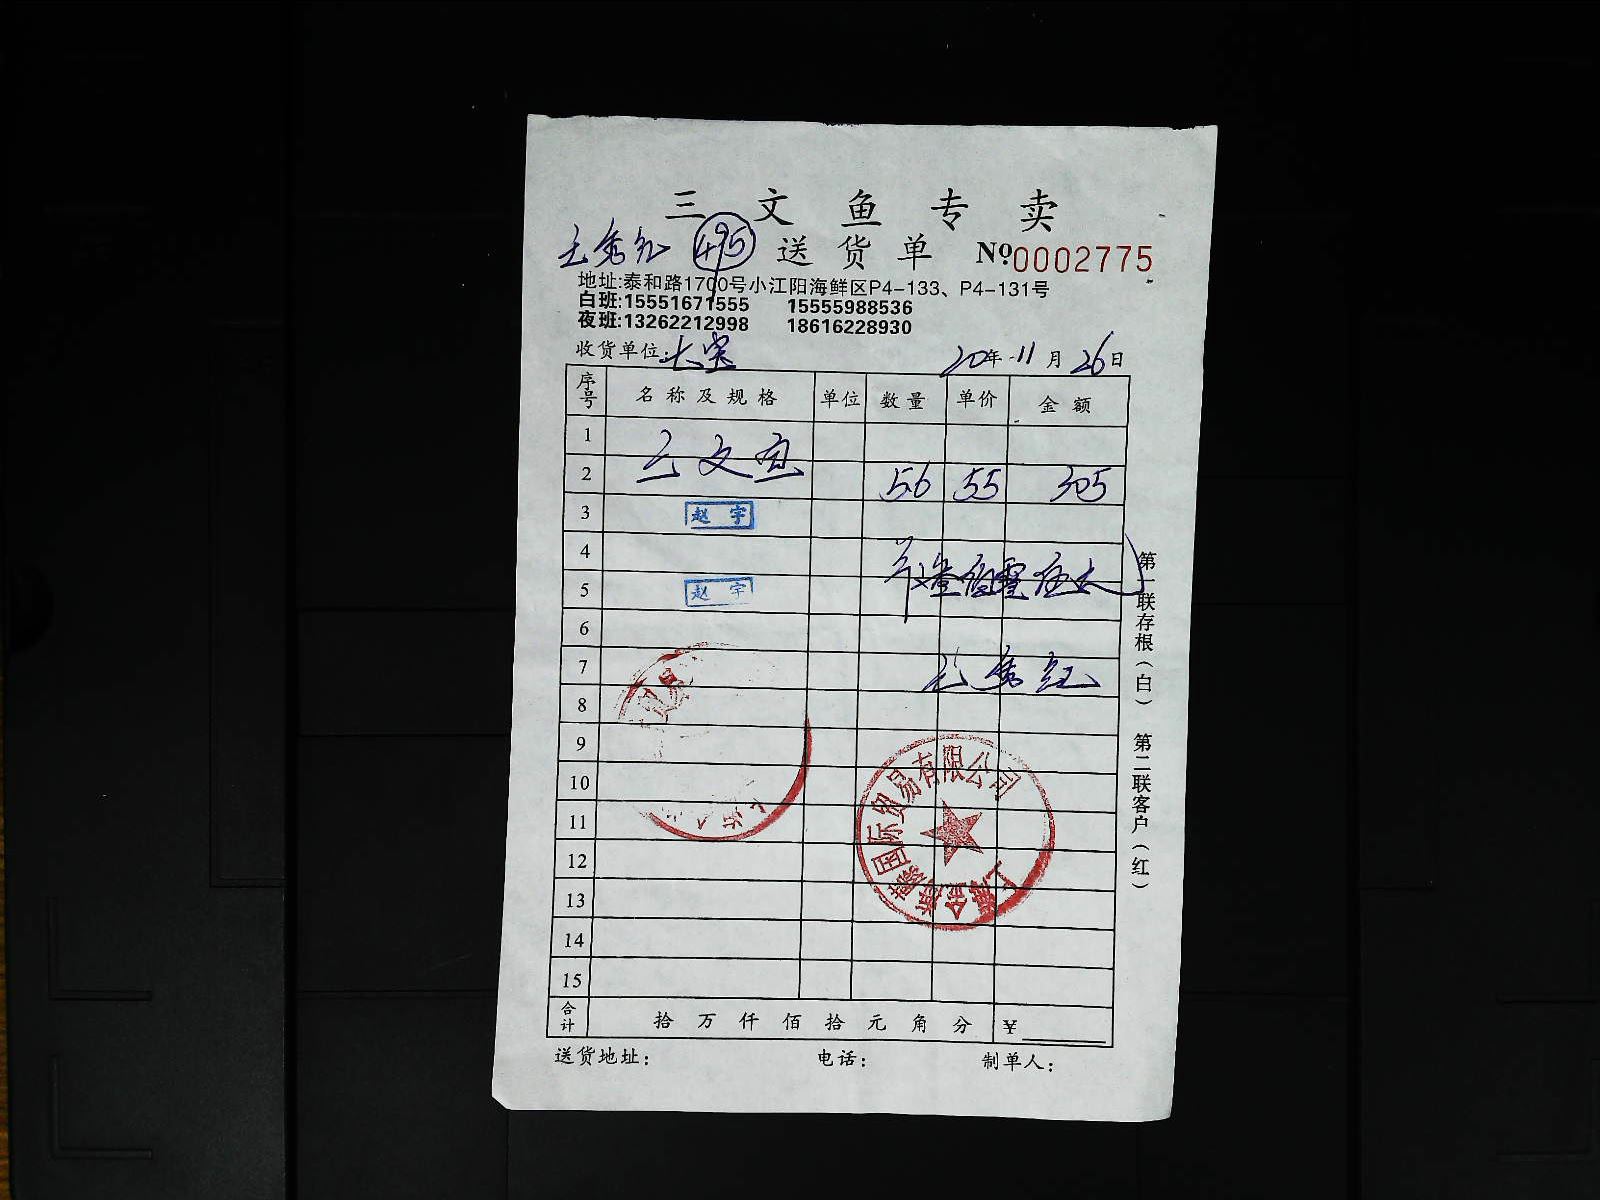 三文鱼专卖
王秀红 495 送货单 №0002775
地址:泰和路1700号小江阳海鲜区P4-133、P4-131号
白班:15551671555 15555988536
夜班:13262212998 18616228930
收货单位: 20年11月26日
序号 名称及规格 单位 数量 单价 金额
1
三文鱼
2 5.6 55 305
3 赵宇
4
5 赵宇
6
7 王秀红
8
9
10
11
12
13
14
15
上海金膳赫国际贸易有限公司
合计 拾万仟佰拾元角分 ¥
送货地址: 电话: 制单人:
第一联存根(白) 第二联客户(红)